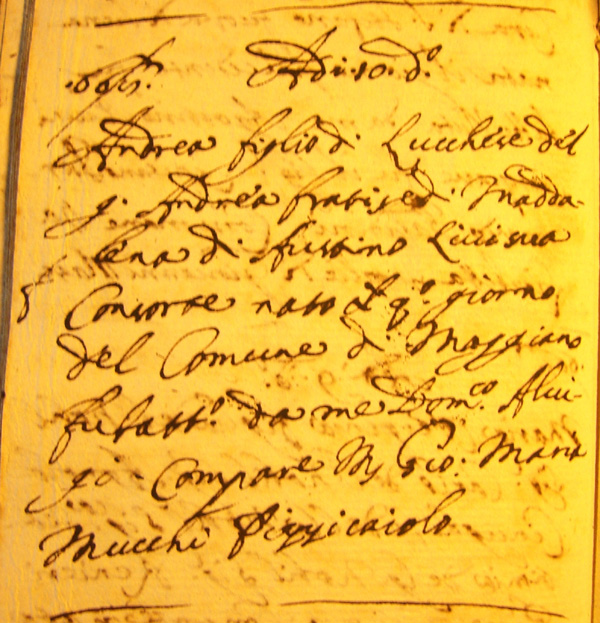 Adi 10 d.º
Andrea figlio di Lucchese del
q. Andrea di Madda-
lena di Giustino sua
Consorte nato il q.º giorno
del Comune di Maggiano
fu batt.º da me Dom.co Alui-
gi Compare M. Gio: Maria
Mucchi Pizzicaiolo